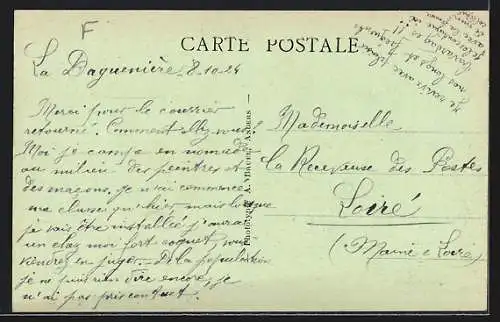 F
CARTE POSTALE
La Daguenière, 8.10.24
Merci pour le courrier
retourné. Comment allez-vous?
Moi je campe en nomade
au milieu des peintres et
des maçons, je n'ai commencé
ma classe qu'hier mais lorsque
je vais être installée j'aurai
un chez moi fort coquet, vous
viendrez en juger. De la population
je ne puis rien dire encore, je
n'ai pas pris contact.
Phototypie A. Bruel, Angers
Mademoiselle
La Receveuse des Postes
Loiré
(Maine & Loire)
Je revis avec plaisir
nos longs et
bavardages